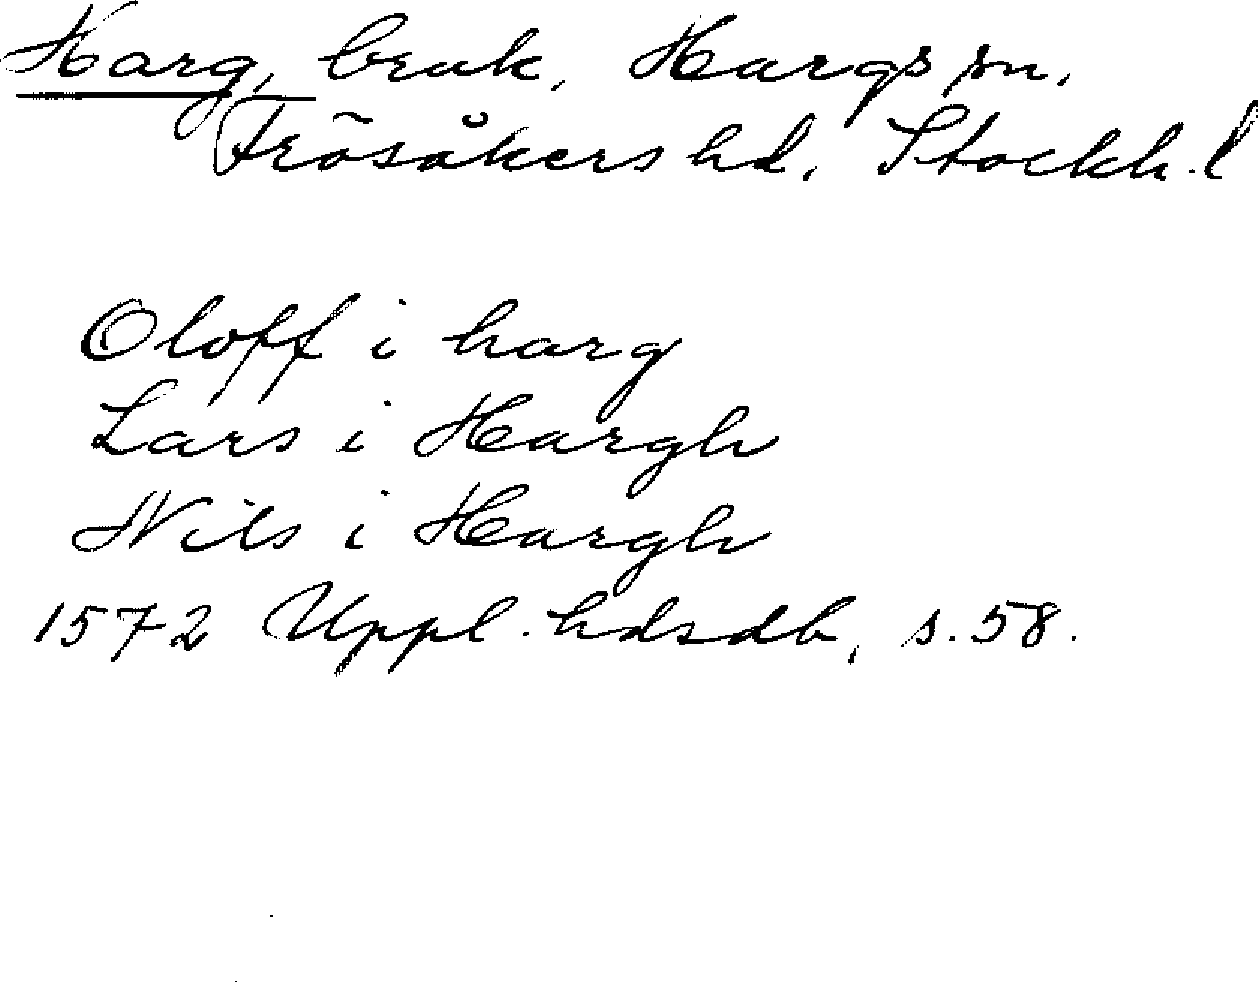 Harg, bruk, Hargs sn,
Frösåkers hd, Stockh. l
Oloff i harg
Lars i Hargh
Nils i Hargh
1572 Uppl. hdsdb, s. 58.